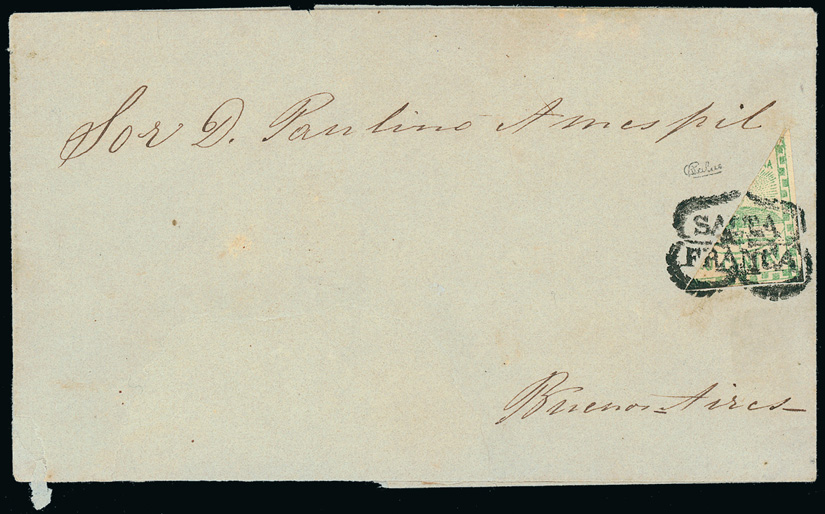 Sor D. Paulino Amespil
SALTA
FRANCA
Buenos-Aires-